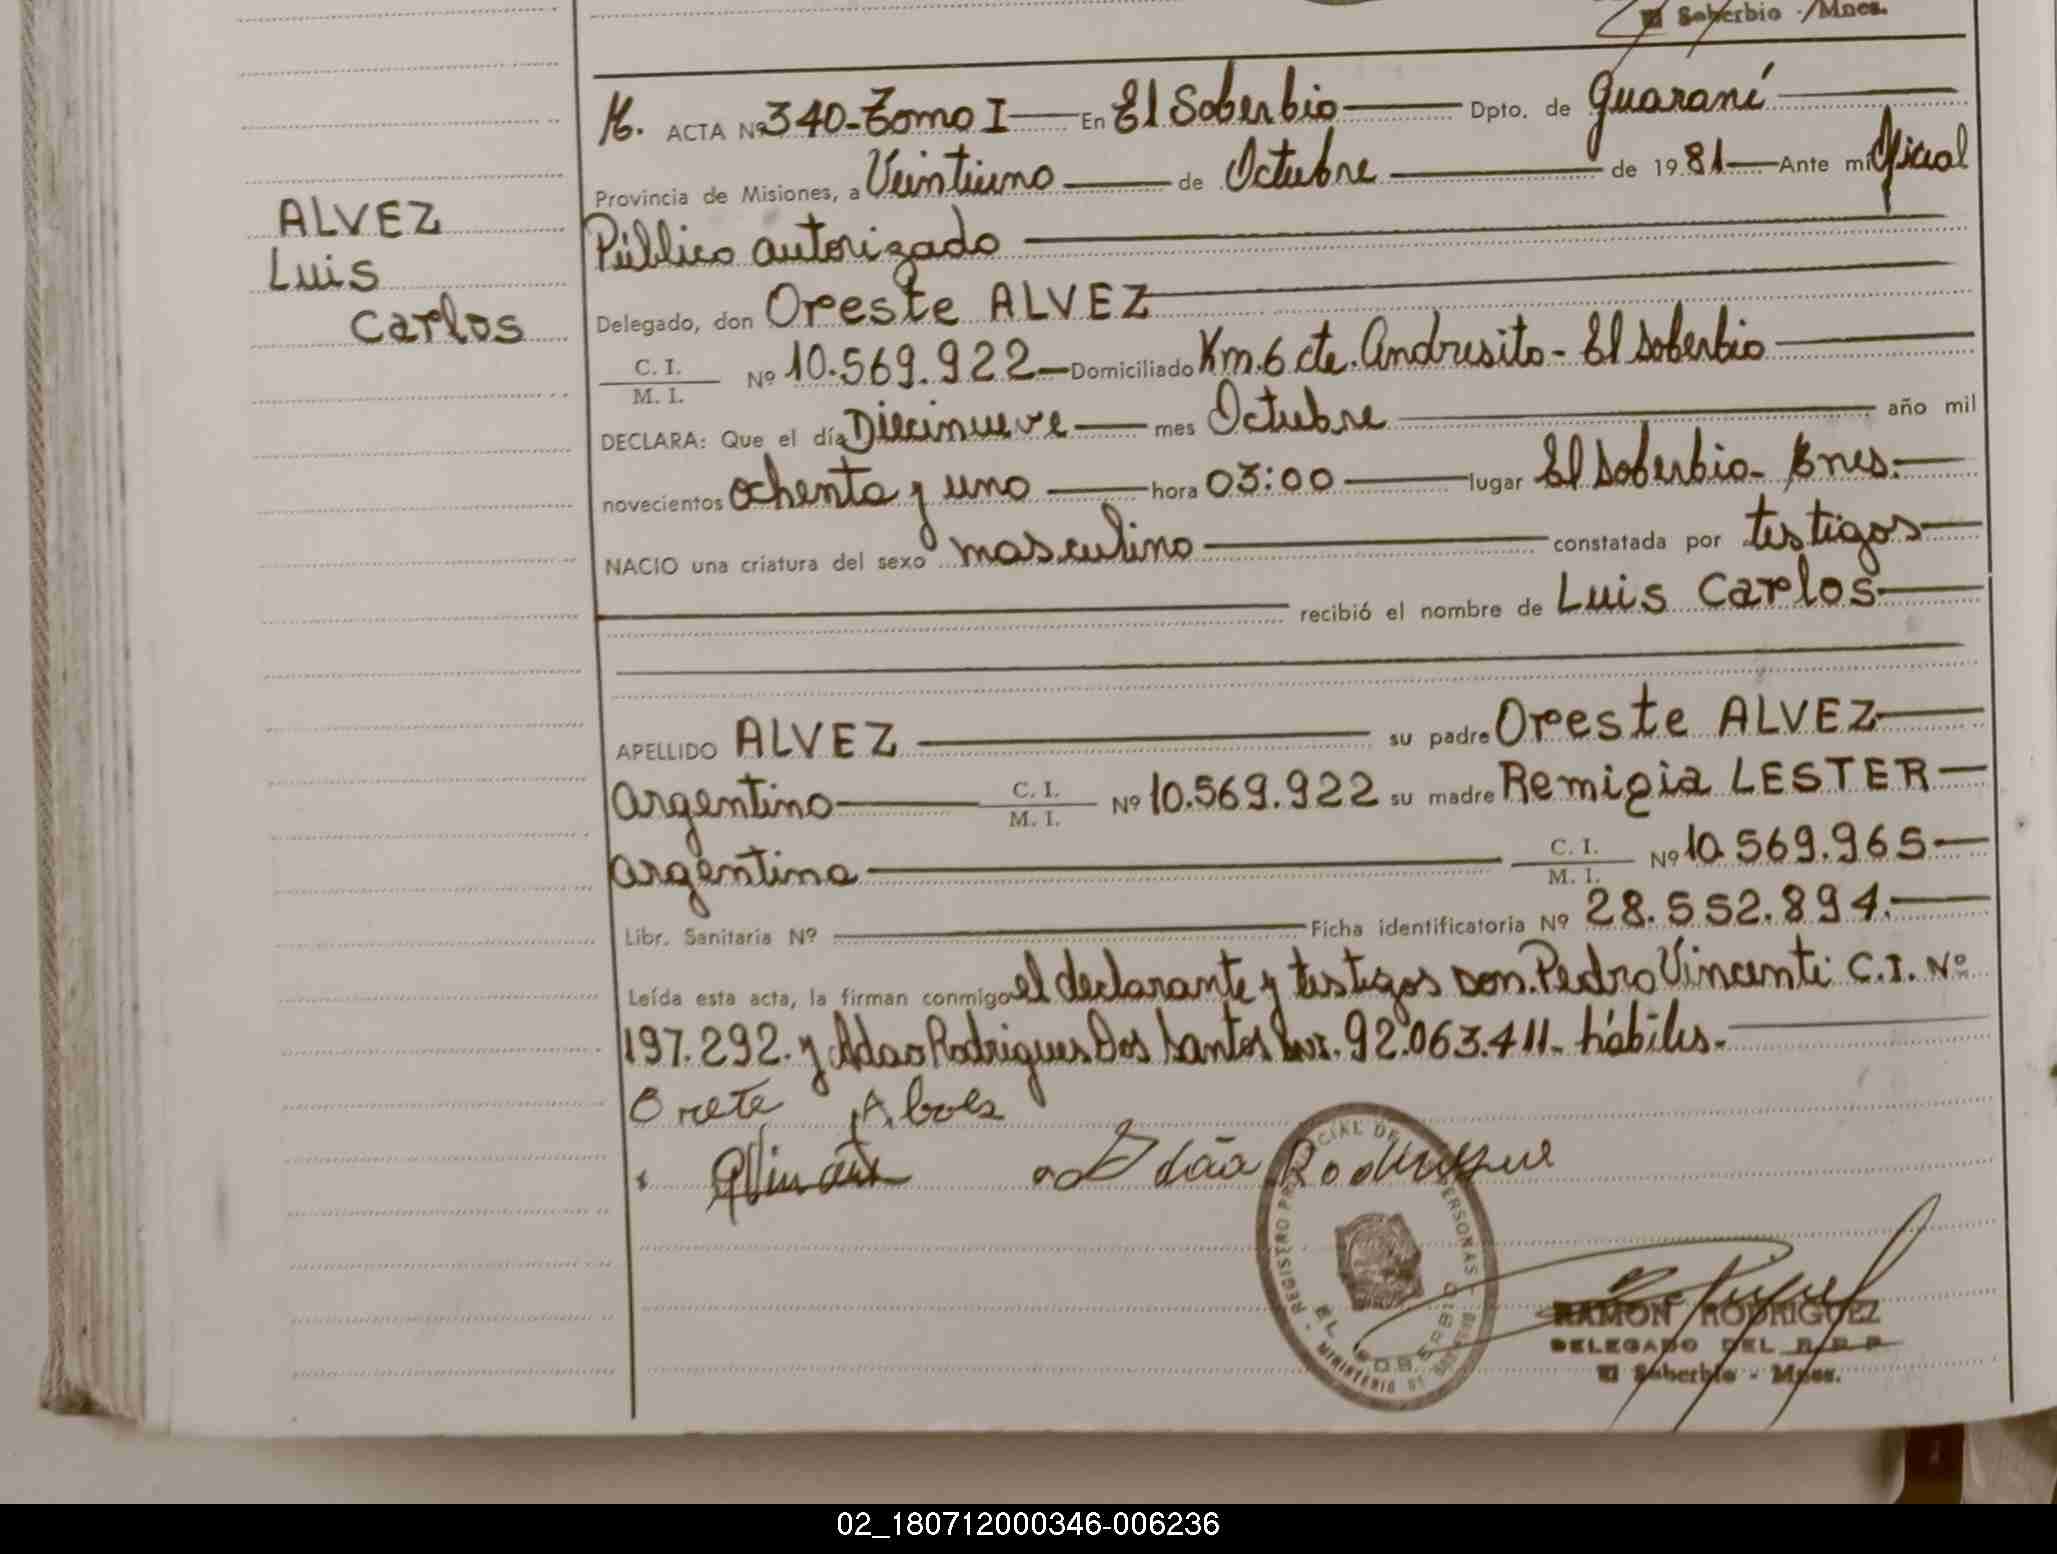 El Soberbio - Mnes.
ACTA Nº 340-Tomo I En El Soberbio Dpto. de Guaraní
Provincia de Misiones, a Veintiuno de Octubre de 1981 Ante mi Oficial
Público autorizado
ALVEZ
Luis
Carlos
Delegado, don Oreste ALVEZ
C. I.
M. I.
Nº 10.569.922 Domiciliado Km. 6 cte. Andresito - El Soberbio
DECLARA: Que el día Diecinueve mes Octubre año mil
novecientos ochenta y uno hora 03:00 lugar El Soberbio -
NACIO una criatura del sexo masculino constatada por testigos
recibió el nombre de Luis Carlos
APELLIDO ALVEZ su padre Oreste ALVEZ
argentino C. I. M. I. Nº 10.569.922 su madre Remigia LESTER
argentina C. I. M. I. Nº 10.569.965
Libr. Sanitaria Nº Ficha identificatoria Nº 28.552.894.
Leída esta acta, la firman conmigo el declarante y testigos Don. Pedro Vincenti C.I. Nº
197.292. y Adao Rodrigues Dos Santos 92.063.411. hábiles.
Orete
Rodrigue
REGISTRO PROVINCIAL DE PERSONAS
EL SOBERBIO
MINISTERIO DE
RAMON RODRIGUEZ
DELEGADO DEL R.P.P.
El Soberbio - Mnes.
02_180712000346-006236